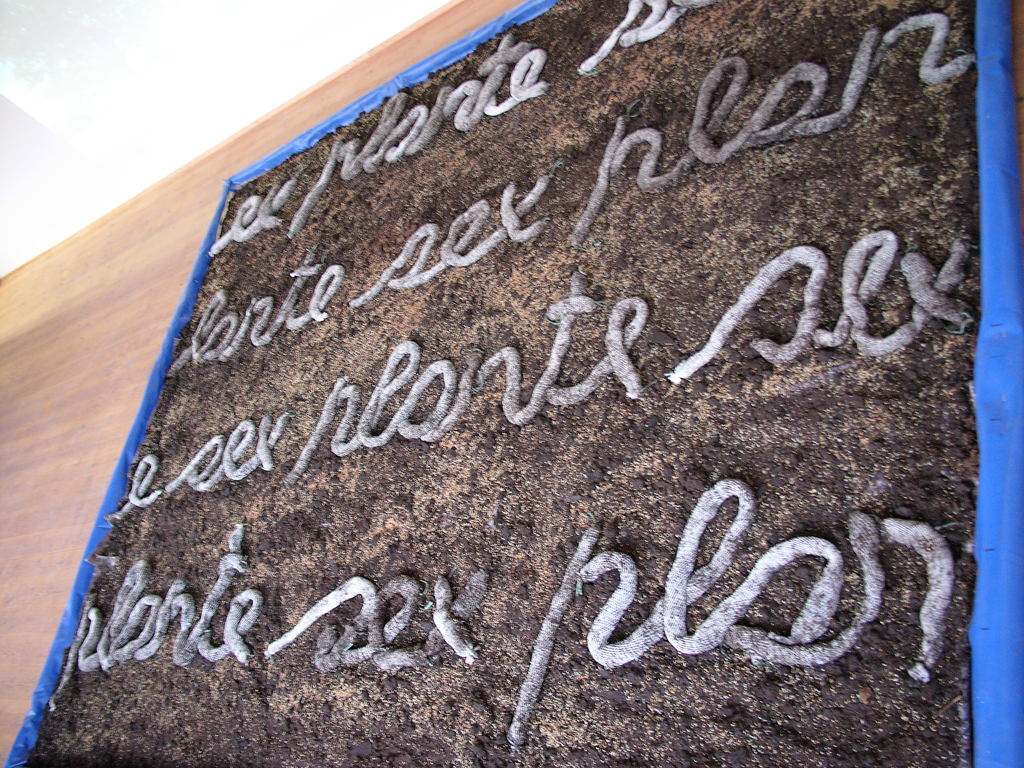 sex plante s
lante sex plan
e sex plante sex
plante sex plan